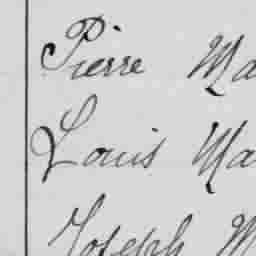 Pierre Ma
Louis Ma
Joseph M